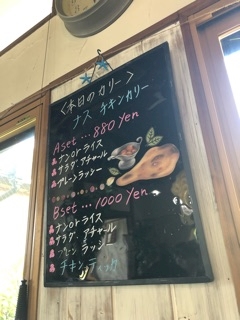 ＜本日のカリー＞
ナス チキンカリー
Aset...880yen
ナンorライス
サラダ・アチャール
プレーンラッシー
Bset...1000yen
ナンorライス
サラダ・アチャール
プレーンラッシー
チキンティッカ